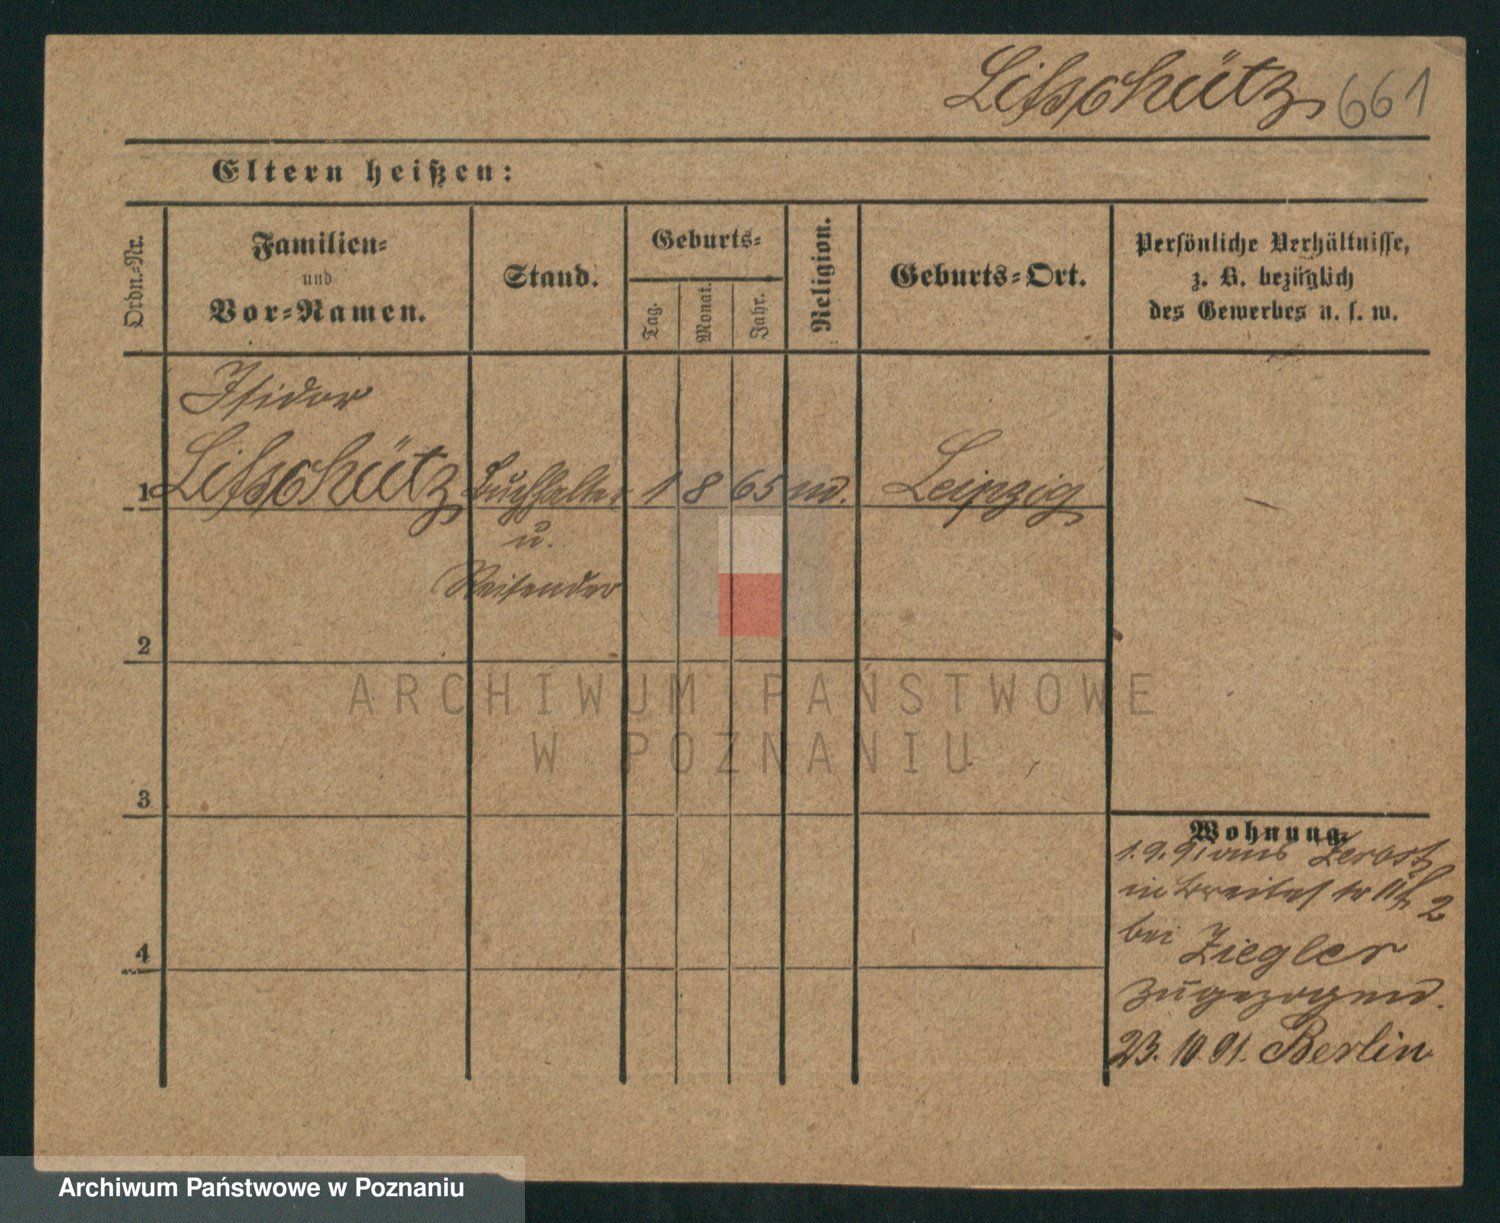 Lifschütz 661
Eltern heißen:
Ordn.-Nr.
Familien-
und
Vor-Namen.
Stand.
Geburts-
Tag.
Monat.
Jahr.
Religion.
Geburts-Ort.
Persönliche Verhältnisse,
z. B. bezüglich
des Gewerbes u. s. w.
Isidor
1 Lifschütz Buchhalter 1 8 65 m. Leipzig
u.
Reisender
2
3
4
Wohnung.
1.9.91 aus Zerbst
in Breitestr 11
bei Ziegler
zugezogen.
23.10.91. Berlin
ARCHIWUM PAŃSTWOWE
W POZNANIU
Archiwum Państwowe w Poznaniu